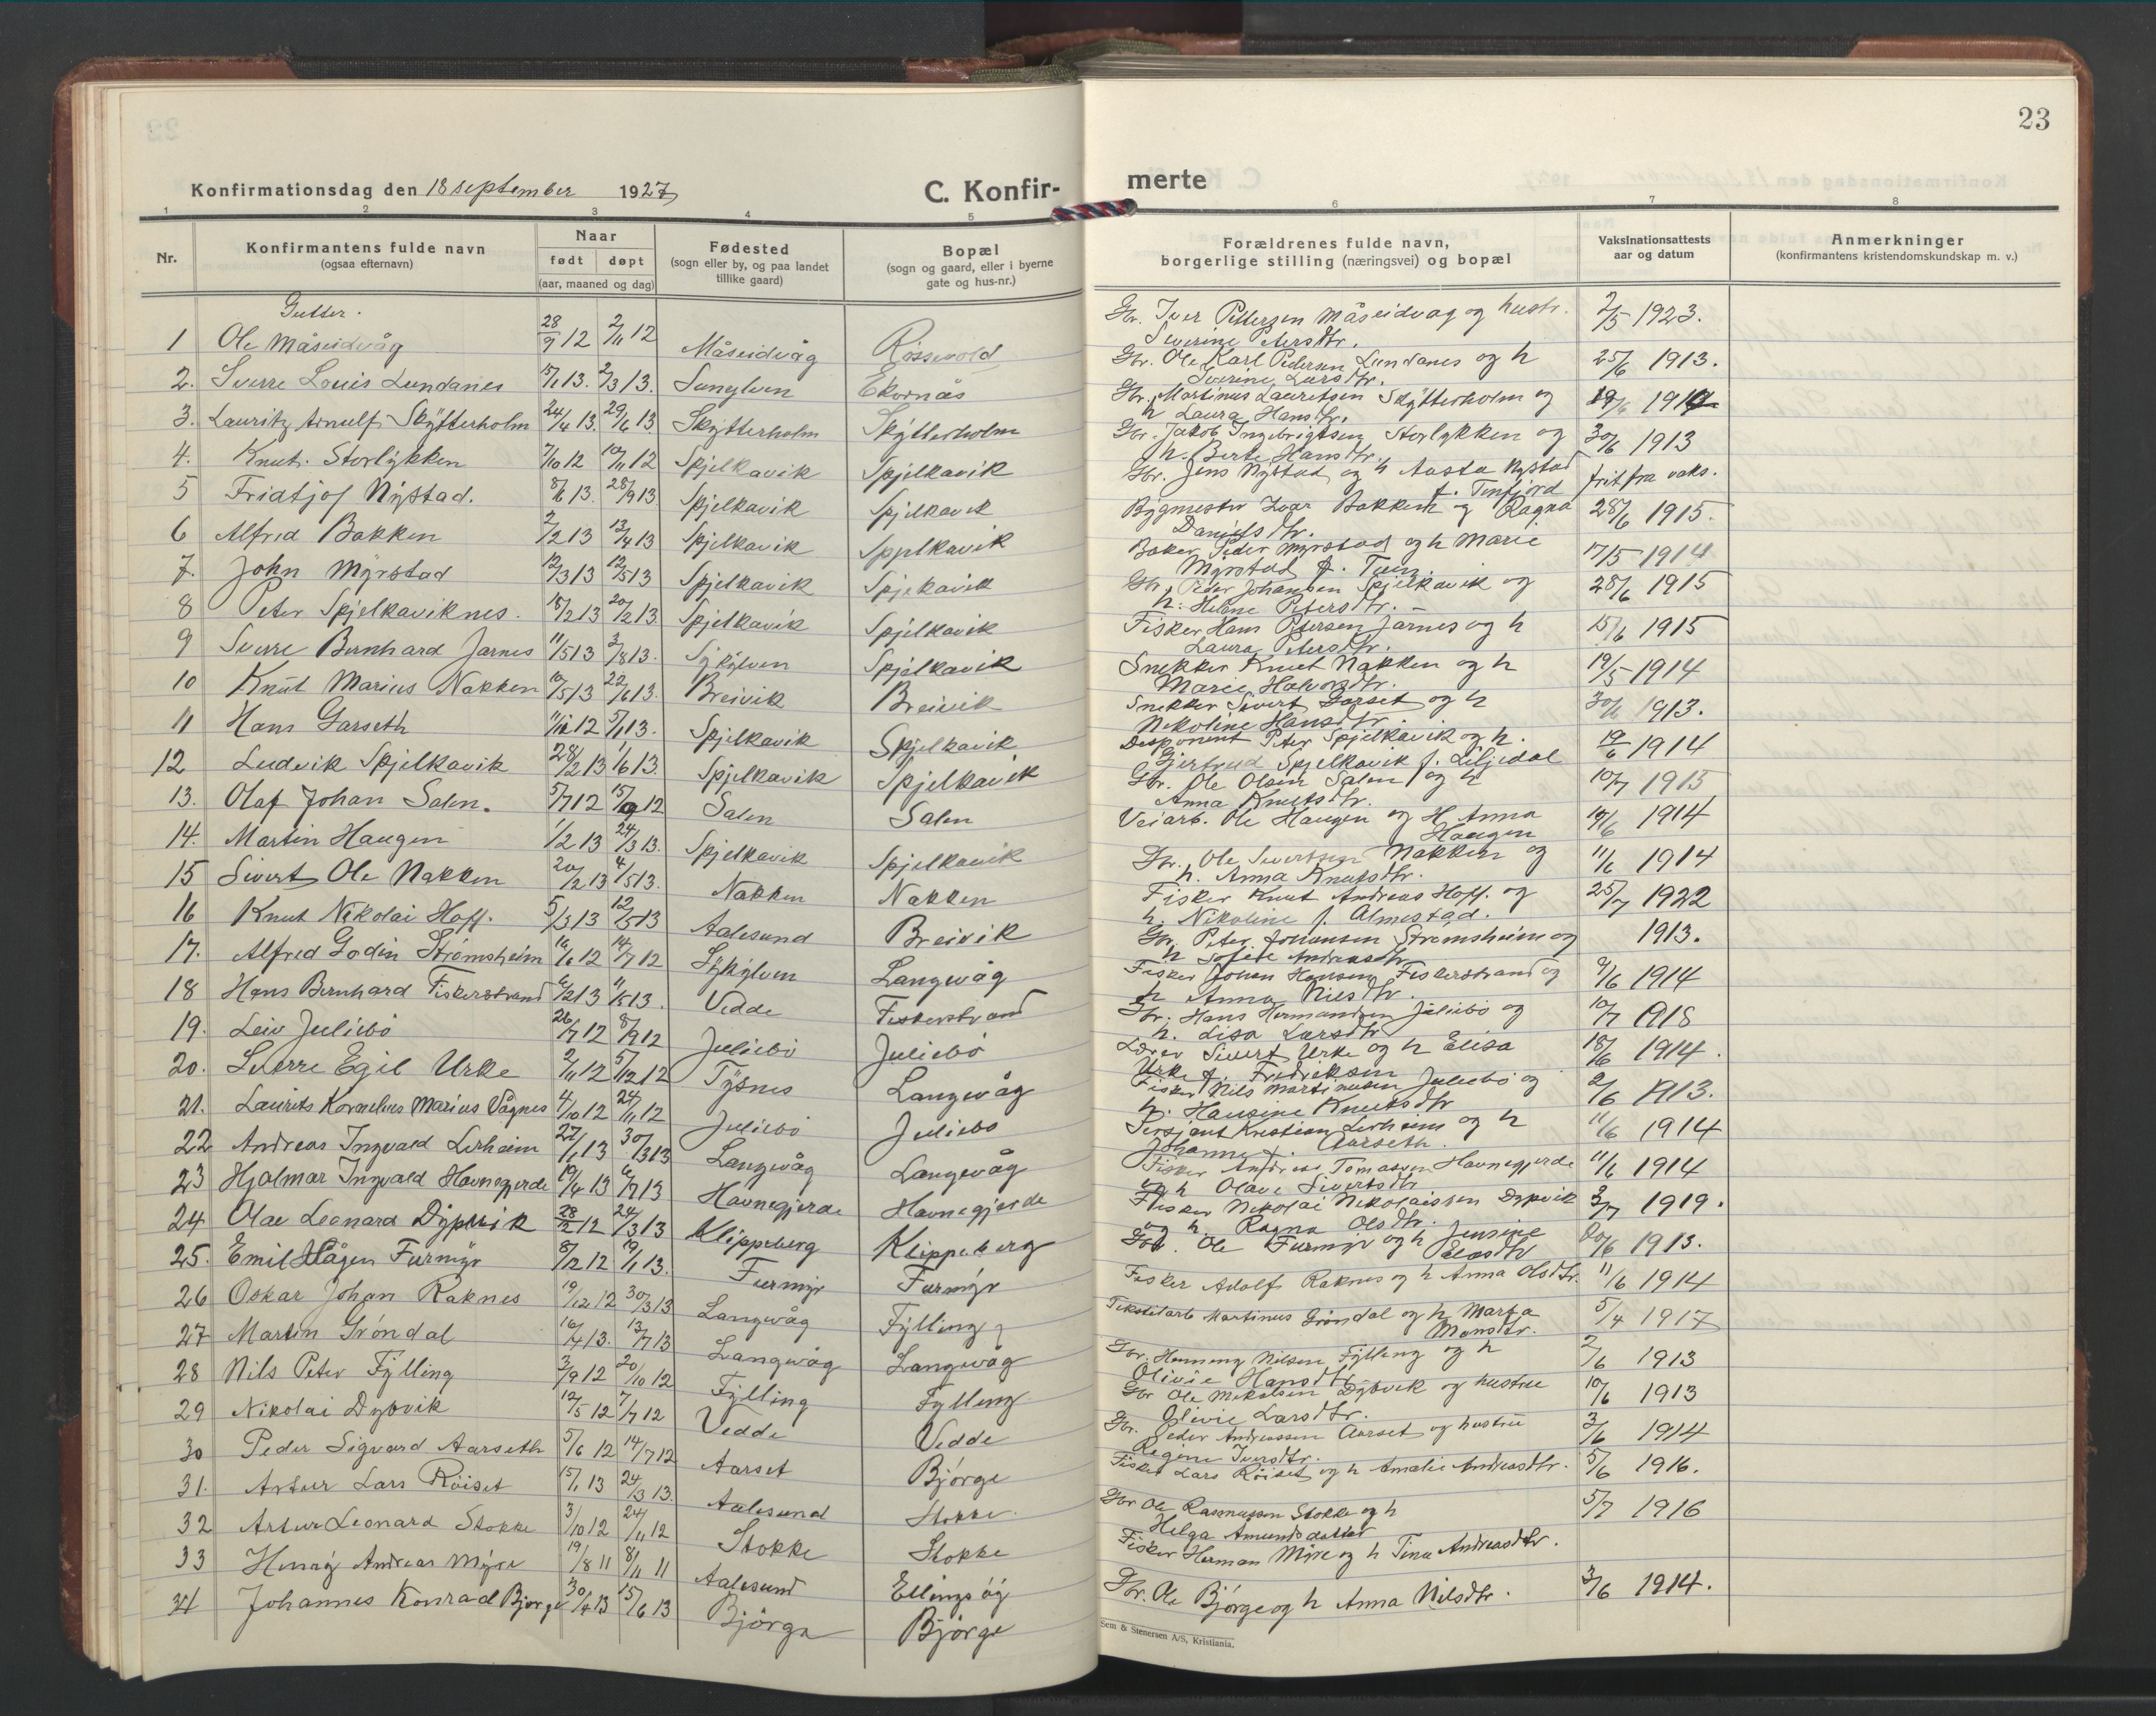 23
Konfirmationsdag den 18 september 1927
C. Konfir-
merte
1 2 3 4 5 6 7 8
Nr.
Konfirmantens fulde navn
(ogsaa efternavn)
Naar
født døpt
(aar, maaned og dag)
Fødested
(sogn eller by, og paa landet
tillike gaard)
Bopæl
(sogn og gaard, eller i byerne
gate og hus-nr.)
Forældrenes fulde navn,
borgerlige stilling (næringsvei) og bopæl
Vaksinationsattests
aar og datum
Anmerkninger
(konfirmantens kristendomskundskap m. v.)
Gutter.
1 Ole Måseidvåg 28/9 12 2/11 12 Måseidvåg Røssevold
2. Sverre Louis Lundanes 5/1 13. 2/3 13. Sunylven Ekornås
3. Lauritz Arnulf Skÿtterholm 24/4 13. 29/6 13. Skÿtterholm Skÿtterholm
4. Knut. Storlÿkken 7/10 12 10/11 12 Spjelkavik Spjelkavik
5 Fridtjof Nÿstad. 8/6 13. 28/9 13 Spjelkavik Spjelkavik
6 Alfred Bakken 2/2 13 13/4 13 Spjelkavik Spjelkavik
7. John Mÿrstad 12/3 13 12/5 13 Spjelkavik Spjelkavik
8 Peter Spjelkaviknes. 18/2 13 20/2 13. Spjelkavik Spjelkavik
9 Sverre Bernhard Jarnes 11/5 13 3/8 13. Sÿkÿlven Spjelkavik
10 Knut Marius Nakken 10/5 13 22/6 13. Breivik Breivik
11 Hans Garseth 11/10 12 5/1 13. Spjelkavik Spjelkavik
12 Ludvik Spjelkavik 28/2 13 1/6 13. Spjelkavik Spjelkavik
13. Olaf Johan Salen. 5/7 12 15/9 12 Salen Salen
14. Martin Haugen 1/2 13 24/3 13. Spjelkavik Spjelkavik
15 Sivert Ole Nakken 20/2 13 4/5 13. Nakken Nakken
16 Knut Nikolai Hoff. 5/3 13 12/5 13 Aalesund Breivik
17. Alfred Godin Strømsheim 16/6 12 14/7 12 Sÿkÿlven Langevåg
18 Hans Bernhard Fiskerstrand 6/2 13 11/5 13. Vedde Fiskerstrand
19. Leiv Juliebø 26/7 12 8/9 12 Juliebø Juliebø
20. Sverre Egil Urke 2/11 12 5/12 12 Tÿsnes Langevåg
21. Laurits Kornelius Marius Vågnes 4/10 12 24/11 12 Juliebø Juliebø
22 Andreas Ingvald Lerheim 27/1 13 30/3 13 Langevåg Langevåg
23 Hjalmar Ingvald Havnegjerde 19/4 13 6/7 13 Havnegjerde Havnegjerde
24 Olav Leonard Dÿpvik 28/12 12 24/3 13 Klippeberg Klippeberg
25. Emil Hågen Furmÿr 8/12 12 19/1 13. Furmÿr Furmÿr
26 Oskar Johan Raknes 19/12 12 30/3 13 Langevåg Fÿlling
27 Martin Grøndal 16/4 13. 13/7 13 Langevåg Langevåg
28 Nils Peter Fÿlling 3/9 12 20/10 12 Fÿlling Fÿlling
29 Nikolai Dÿbvik 12/5 12 7/7 12 Vedde Vedde
30 Peder Sigvard Aarseth 5/6 12 14/7 12 Aarset Bjørge
31. Artur Lars Røiset 15/1 13 24/3 13. Aalesund Stokke
32 Artur Leonard Stokke 3/10 12 24/11 12 Stokke Stokke
33 Henrÿ Andreas Mÿre 19/8 11 8/11 11 Aalesund Ellingsøÿ
34 Johannes Konrad Bjørge 30/4 13 15/6 13 Bjørge Bjørge
Gbr. Iver Pettersen Måseidvag og hustr. 2/5 1923.
Severine Petersdtr.
Gbr. Ole Karl Pedersen Lundanes og h 25/6 1913.
Severine Larsdtr.
Gbr. Martinus Lauritsen Skÿtterholm og
h Laura Hansdtr.
Gbr. Jakob Ingebrigtsen Storlÿkken og 30/6 1913
h. Berte Hansdtr.
Gbr. Jens Nÿstad og h Aasta Nÿstad frit fra vaks.
f. Tenfjord
Bÿgmester Ivar Bakken og Ragna 28/6 1915.
Danielsdtr.
Baker Peder Mÿrstad og h Marie 17/5 1914
Mÿrstad f. Tuen.
Gbr. Peder Johansen Spjelkavik og 28/6 1915
h. Helene Petersdtr.
Fisker Hans Petersen Jarnes og h 15/6 1915
Laura Petersdtr.
Snekker Knut Nakken og h 19/5 1914
Marie Halvorsdtr.
Snekker Sivert Garset og h 30/6 1913.
Nekoline Hansdtr.
Disponent Peter Spjelkavik og h. 19/6 1914
Gjertrud Spjelkavik f. Liljedal
Gbr. Ole Olsen Salen og h 10/7 1913
Anna Knutsdtr.
Veiarb. Ole Haugen og H Anna 19/6 1914
Haugen
Gbr. Ole Sivertsen Nakken og 11/6 1914
h. Anna Knutsdtr.
Fisker Knut Andreas Hoff. og 25/7 1922
h. Nikoline f. Almestad.
Gbr. Peter Johansen Strømsheim og 1913.
h Sofie Andreasdtr
Fisker Johan Hansen Fiskerstrand og 9/6 1914
h Anna Nilsdtr.
Gbr. Hans Hermansen Juliebø og 10/7 1918
h. Lisa Larsdtr
Lærer Sivert Urke og h Elisa 18/6 1914.
Urke f. Fredriksen
Fisker Nils Martinusen Juliebø og 2/6 1913.
h. Hansine Knutsdtr
Sersjant Kristian Lerheim og h 11/6 1914
Johanne f. Aarseth.
Fisker Andreas Tomassen Havnegjerde 11/6 1914
og h Olave Sivertsdtr
Fisker Nekolai Nekolaissen Dÿpvik 3/7 1919.
og h. Ragna Olsdtr.
Gbr. Ole Furmÿr og h Jensine 20/6 1913.
Eliasdtr
Fisker Adolf Raknes og h Anna Olsdtr. 11/6 1914
Tekstilarb Martinus Grøndal og h Marta 5/4 1917
Monsdtr.
Gbr. Henning Nilsen Fÿlling og h 2/6 1913
Olivie Hansdtr
Gbr Ole Mekalsen Dÿbvik og hustru 10/6 1913
Olivie Larsdtr.
Gbr. Peder Andreassen Aarset og hustru 3/6 1914
Regine Iversdtr.
Fisker Lars Røiset og h Amalie Andreasdtr. 5/6 1916.
Gbr Ole Rasmussen Stokke og h 5/7 1916
Helga Amundsdatter
Fisker Herman Mÿre og h Tina Andreasdtr.
Gbr. Ole Bjørge og h Anna Nilsdtr. 3/6 1914.
Sem & Stenersen A/S, Kristiania.